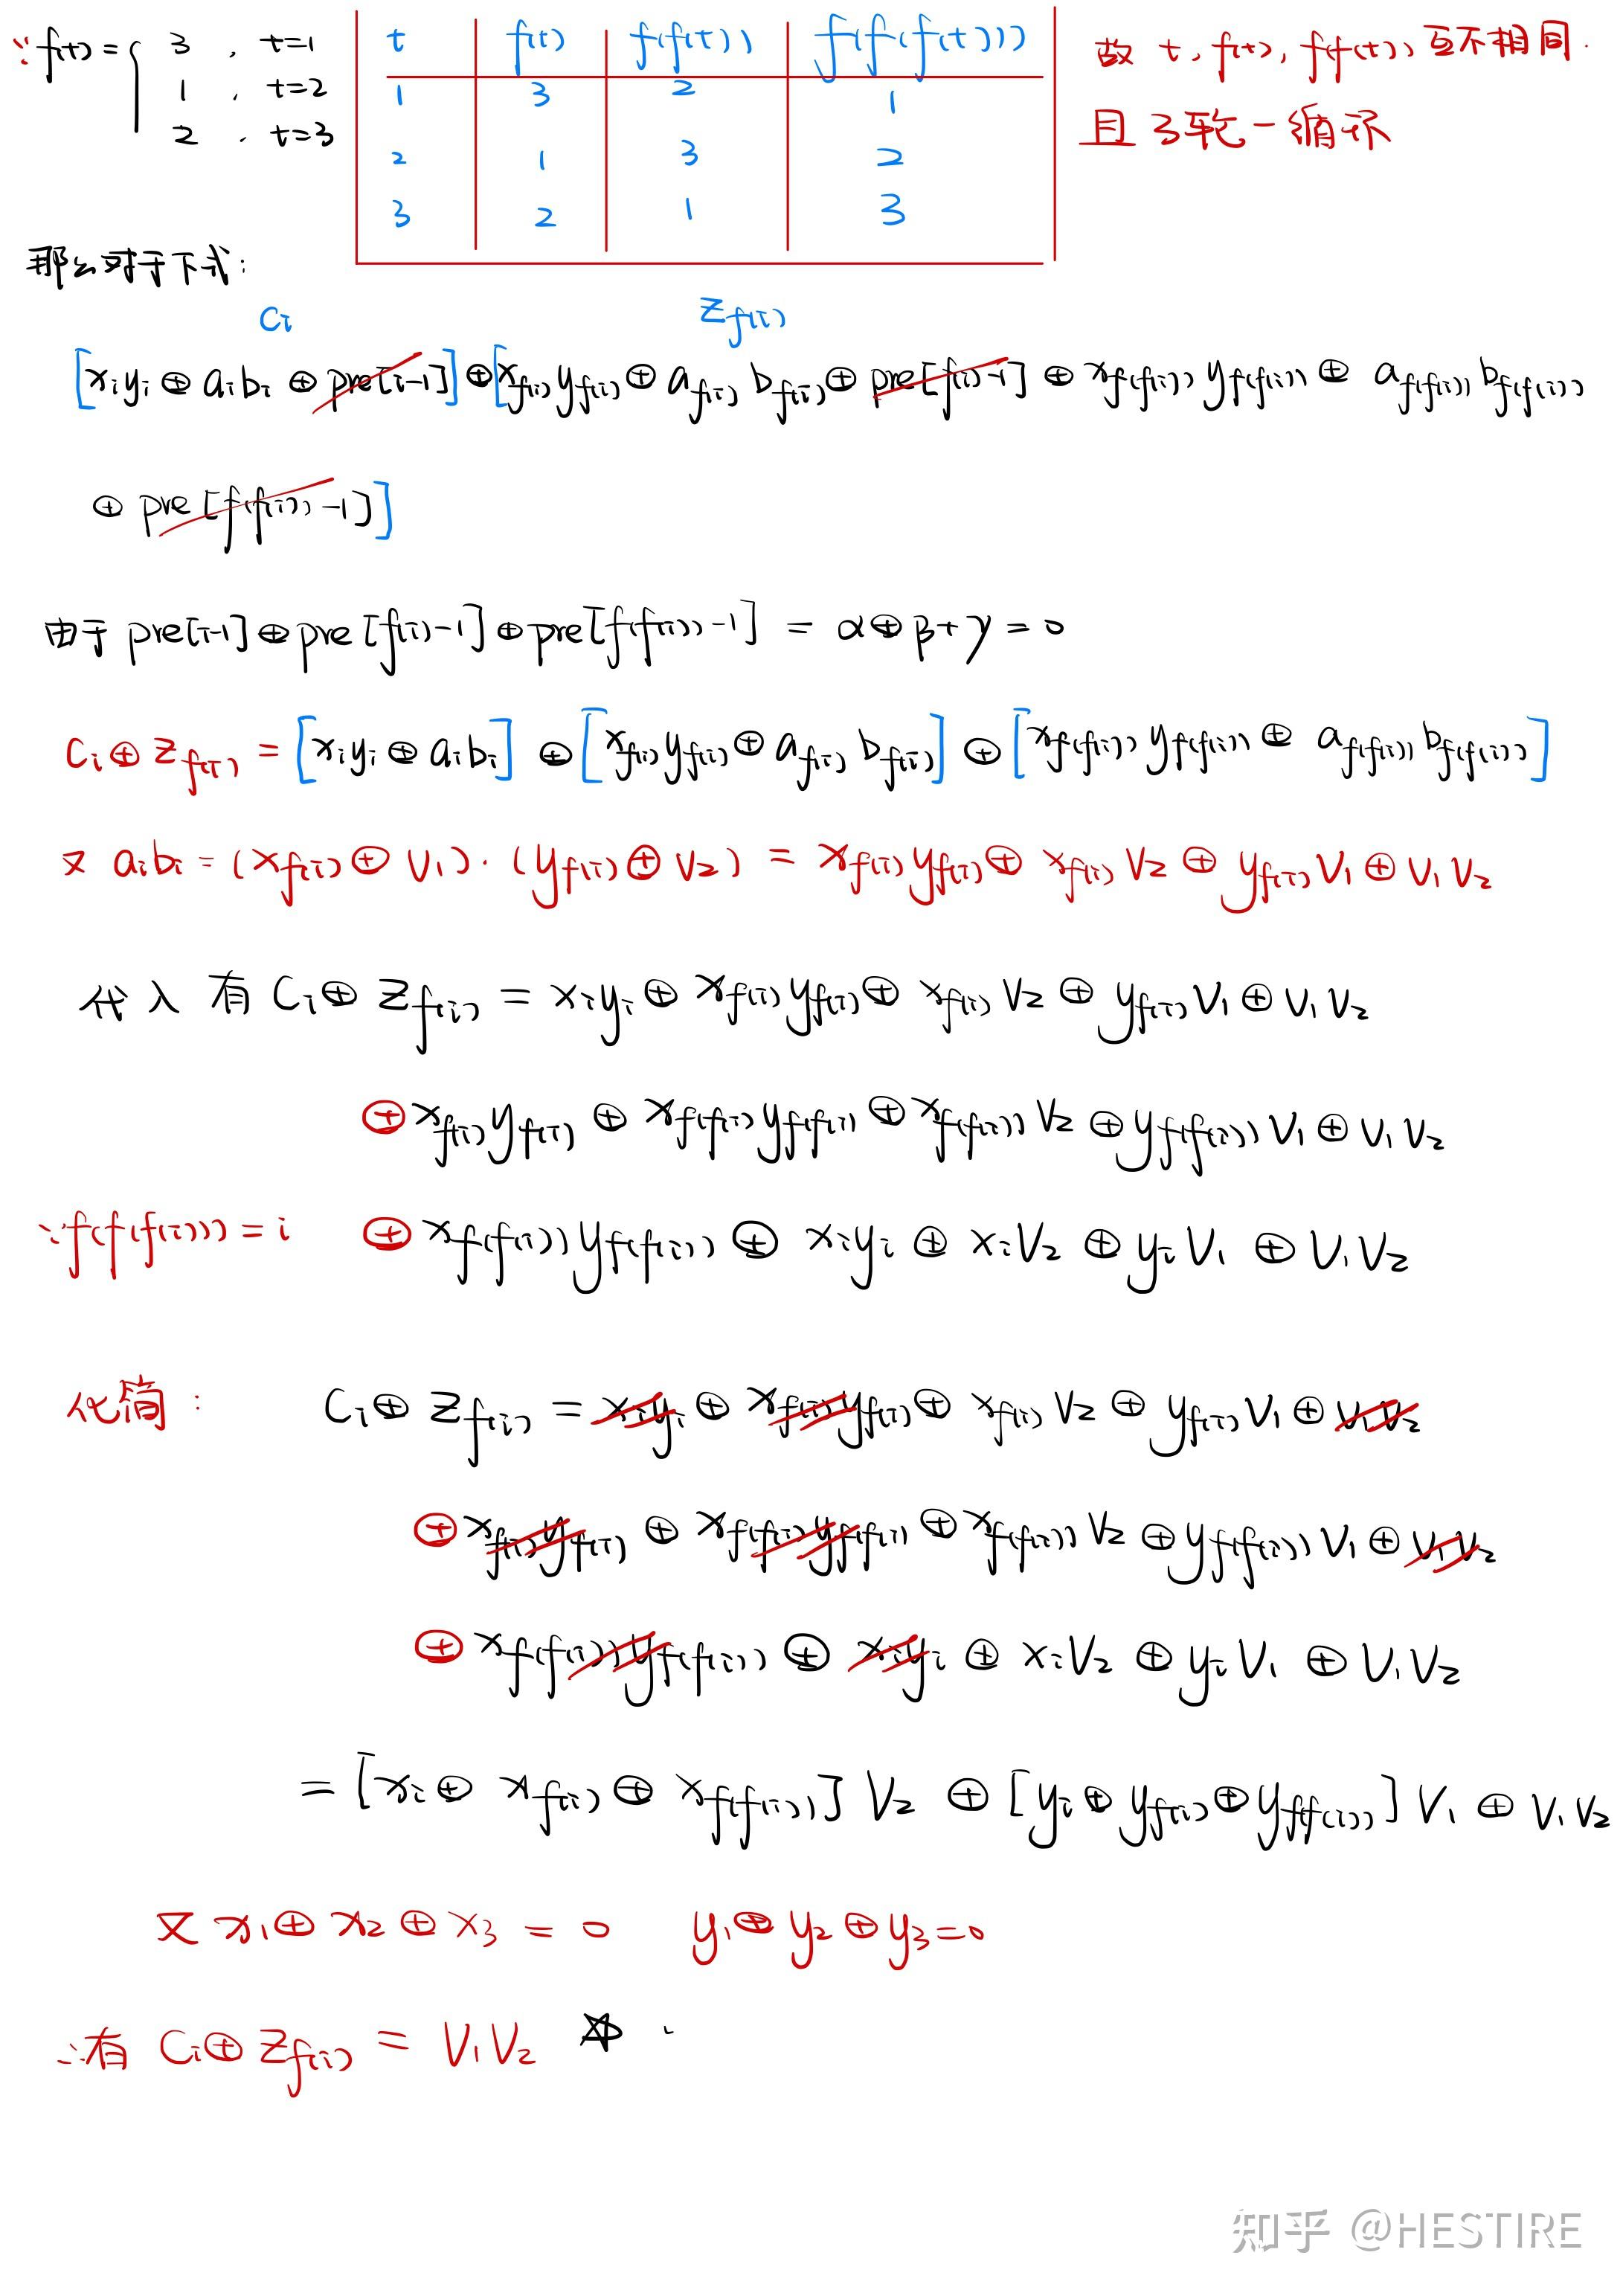 ∵ f(t) = { 3 , t=1
1 , t=2
2 , t=3
t f(t) f(f(t)) f(f(f(t)))
1 3 2 1
2 1 3 2
3 2 1 3
故 t, f(t), f(f(t)) 互不相同.
且 3轮一循环
那么对于下式:
C_i Z_{f(i)}
[x_i y_i ⊕ a_i b_i ⊕ pre[i-1]] ⊕ [x_{f(i)} y_{f(i)} ⊕ a_{f(i)} b_{f(i)} ⊕ pre[f(i)-1] ⊕ x_{f(f(i))} y_{f(f(i))} ⊕ a_{f(f(i))} b_{f(f(i))}
⊕ pre[f(f(i))-1]]
由于 pre[i-1] ⊕ pre[f(i)-1] ⊕ pre[f(f(i))-1] = α⊕β+γ = 0
C_i ⊕ Z_{f(i)} = [x_i y_i ⊕ a_i b_i] ⊕ [x_{f(i)} y_{f(i)} ⊕ a_{f(i)} b_{f(i)}] ⊕ [x_{f(f(i))} y_{f(f(i))} ⊕ a_{f(f(i))} b_{f(f(i))}]
又 a_i b_i = (x_{f(i)} ⊕ V_1)·(y_{f(i)} ⊕ V_2) = x_{f(i)} y_{f(i)} ⊕ x_{f(i)} V_2 ⊕ y_{f(i)} V_1 ⊕ V_1 V_2
代入 有 C_i ⊕ Z_{f(i)} = x_i y_i ⊕ x_{f(i)} y_{f(i)} ⊕ x_{f(i)} V_2 ⊕ y_{f(i)} V_1 ⊕ V_1 V_2
⊕ x_{f(i)} y_{f(i)} ⊕ x_{f(f(i))} y_{f(f(i))} ⊕ x_{f(f(i))} V_2 ⊕ y_{f(f(i))} V_1 ⊕ V_1 V_2
∵ f(f(f(i))) = i ⊕ x_{f(f(i))} y_{f(f(i))} ⊕ x_i y_i ⊕ x_i V_2 ⊕ y_i V_1 ⊕ V_1 V_2
化简: C_i ⊕ Z_{f(i)} = x_i y_i ⊕ x_{f(i)} y_{f(i)} ⊕ x_{f(i)} V_2 ⊕ y_{f(i)} V_1 ⊕ V_1 V_2
⊕ x_{f(i)} y_{f(i)} ⊕ x_{f(f(i))} y_{f(f(i))} ⊕ x_{f(f(i))} V_2 ⊕ y_{f(f(i))} V_1 ⊕ V_1 V_2
⊕ x_{f(f(i))} y_{f(f(i))} ⊕ x_i y_i ⊕ x_i V_2 ⊕ y_i V_1 ⊕ V_1 V_2
= [x_i ⊕ x_{f(i)} ⊕ x_{f(f(i))}] V_2 ⊕ [y_i ⊕ y_{f(i)} ⊕ y_{f(f(i))}] V_1 ⊕ V_1 V_2
又 x_1 ⊕ x_2 ⊕ x_3 = 0 y_1 ⊕ y_2 ⊕ y_3 = 0
∴ 有 C_i ⊕ Z_{f(i)} = V_1 V_2 ☆
知乎 @HESTIRE